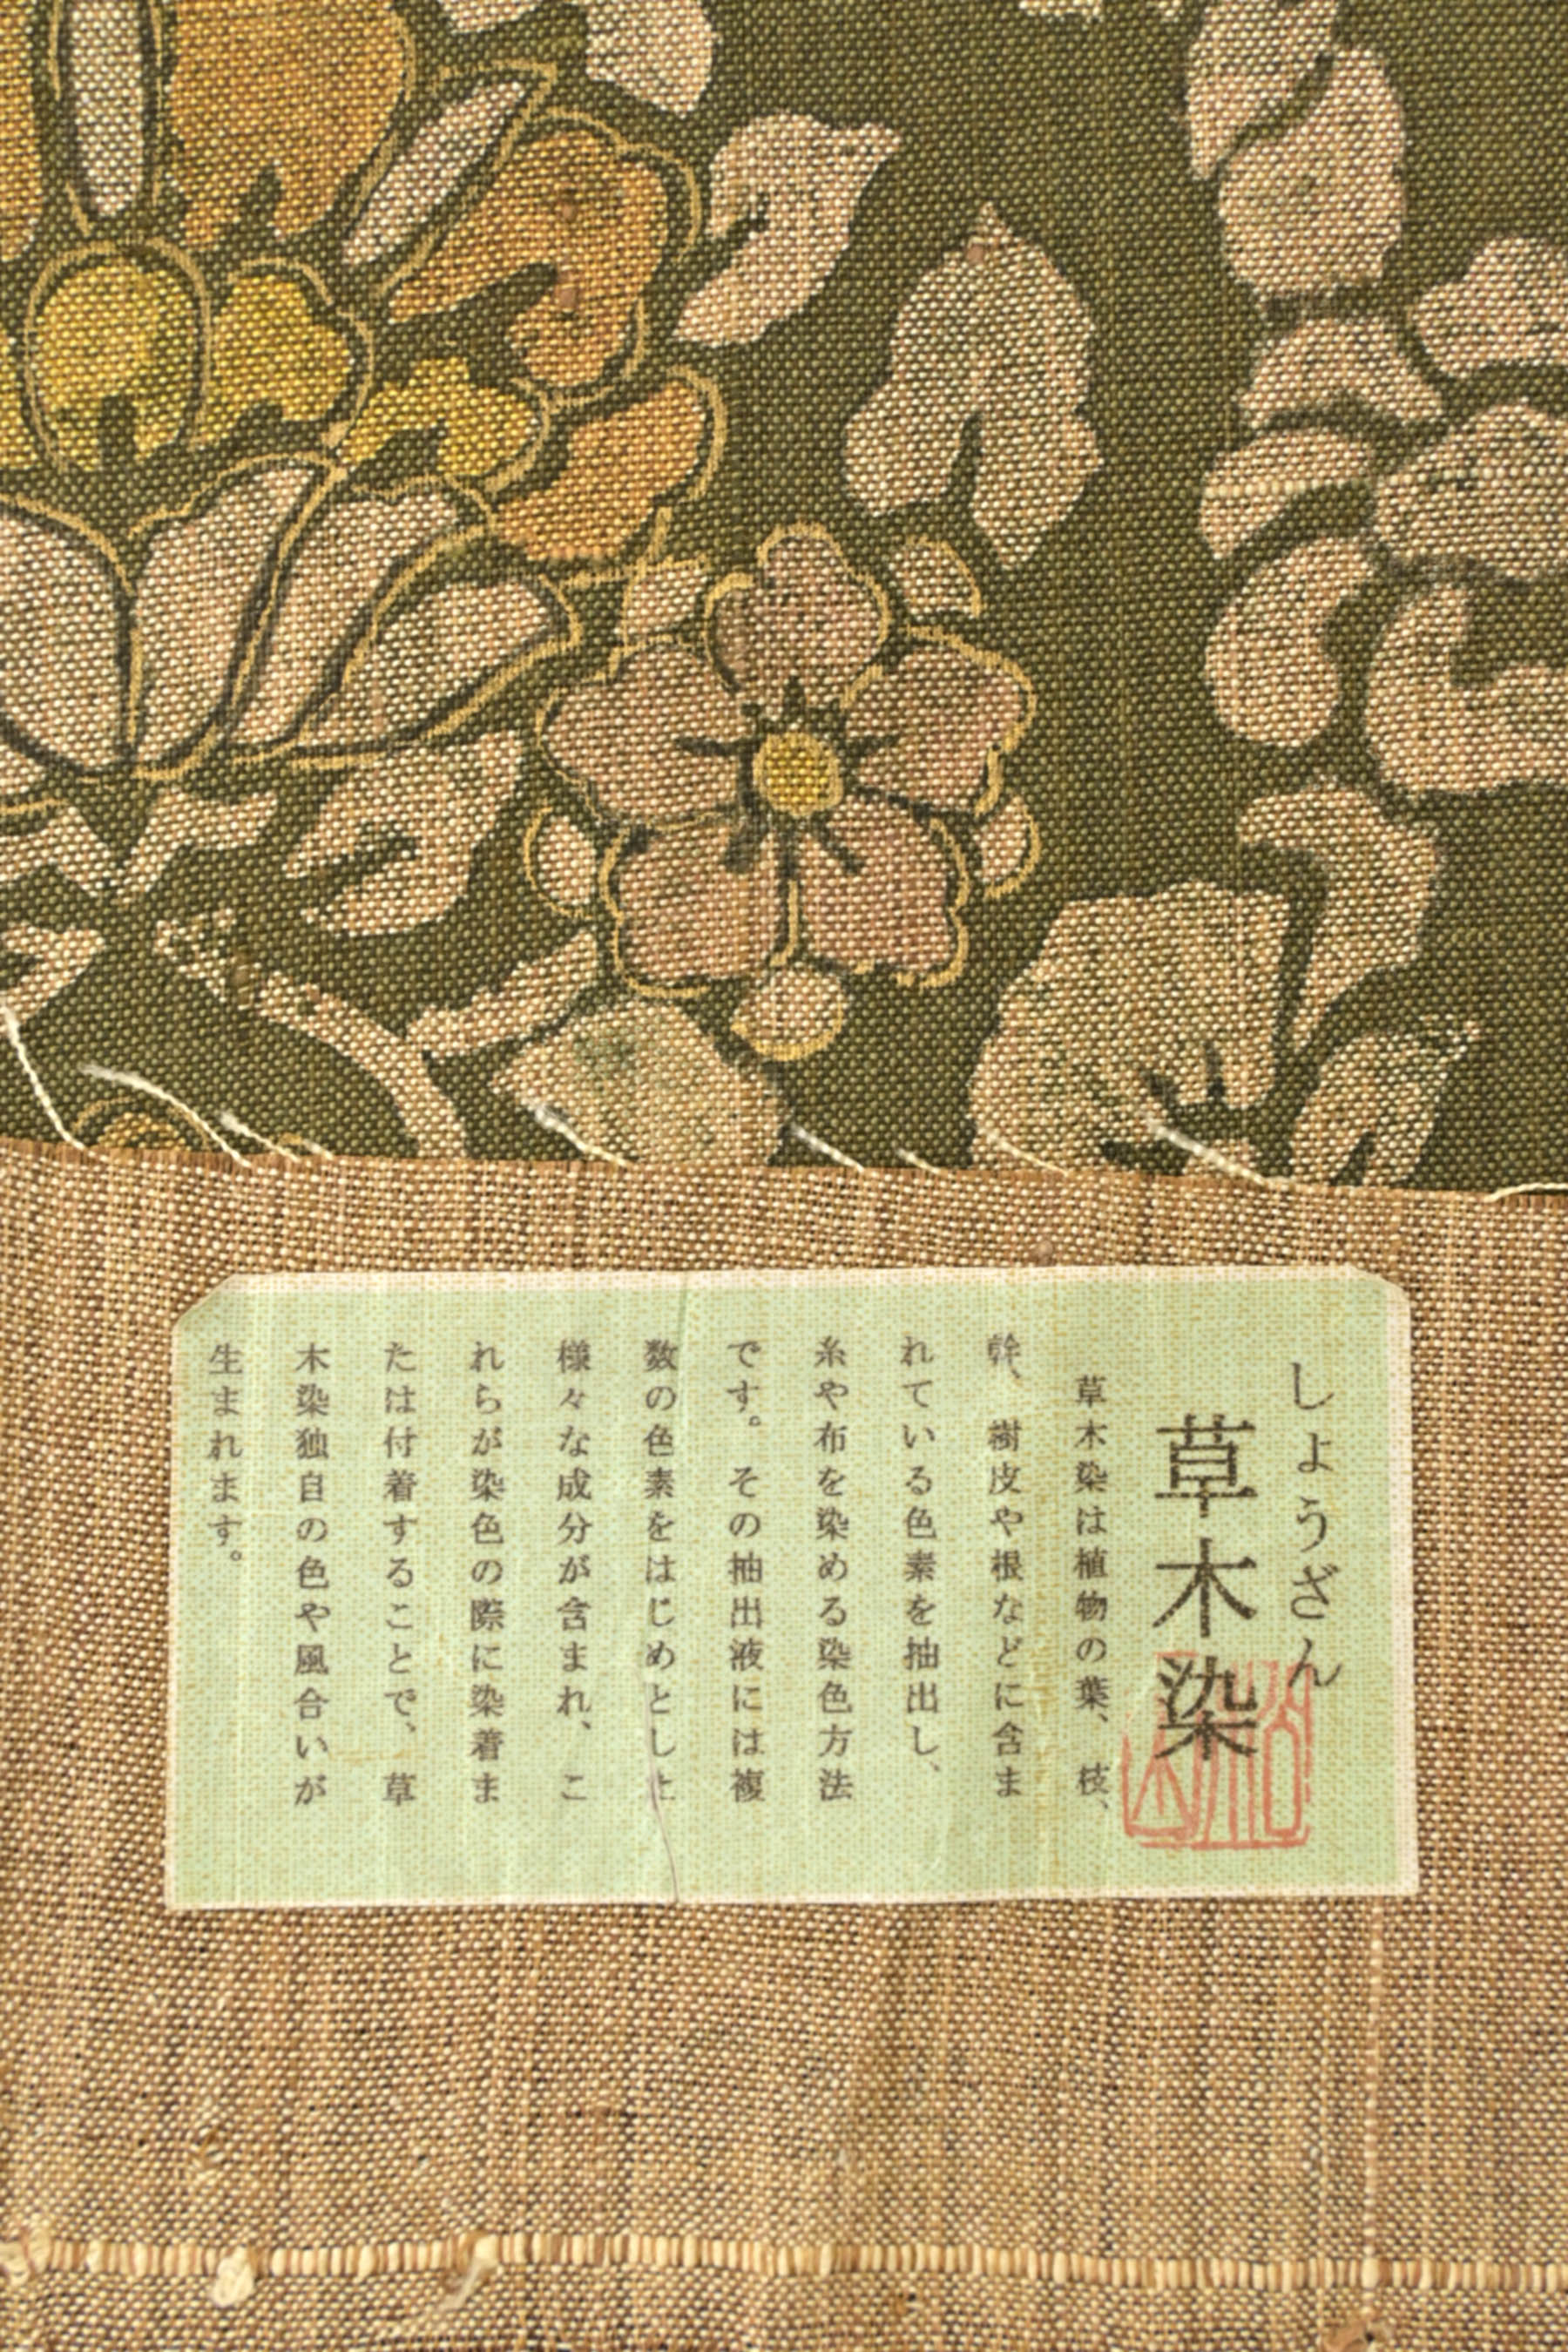 しょうざん
草木染
草木染は植物の葉、枝、
幹、樹皮や根などに含ま
れている色素を抽出し、
糸や布を染める染色方法
です。その抽出液には複
数の色素をはじめとした
様々な成分が含まれ、こ
れらが染色の際に染着ま
たは付着することで、草
木染独自の色や風合いが
生まれます。